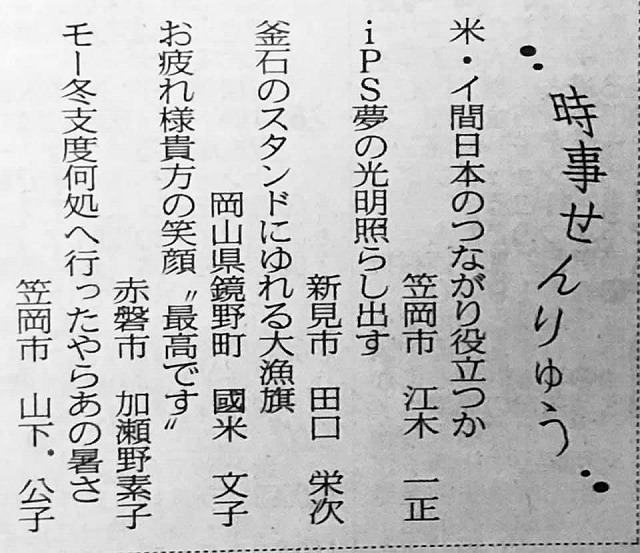 時事せんりゅう
米・イ間日本のつながり役立つか
笠岡市 江木 一正
iPS夢の光明照らし出す
新見市 田口 栄次
釜石のスタンドにゆれる大漁旗
岡山県鏡野町 國米 文子
お疲れ様貴方の笑顔〝最高です〟
赤磐市 加瀬野素子
モー冬支度何処へ行ったやらあの暑さ
笠岡市 山下 公子